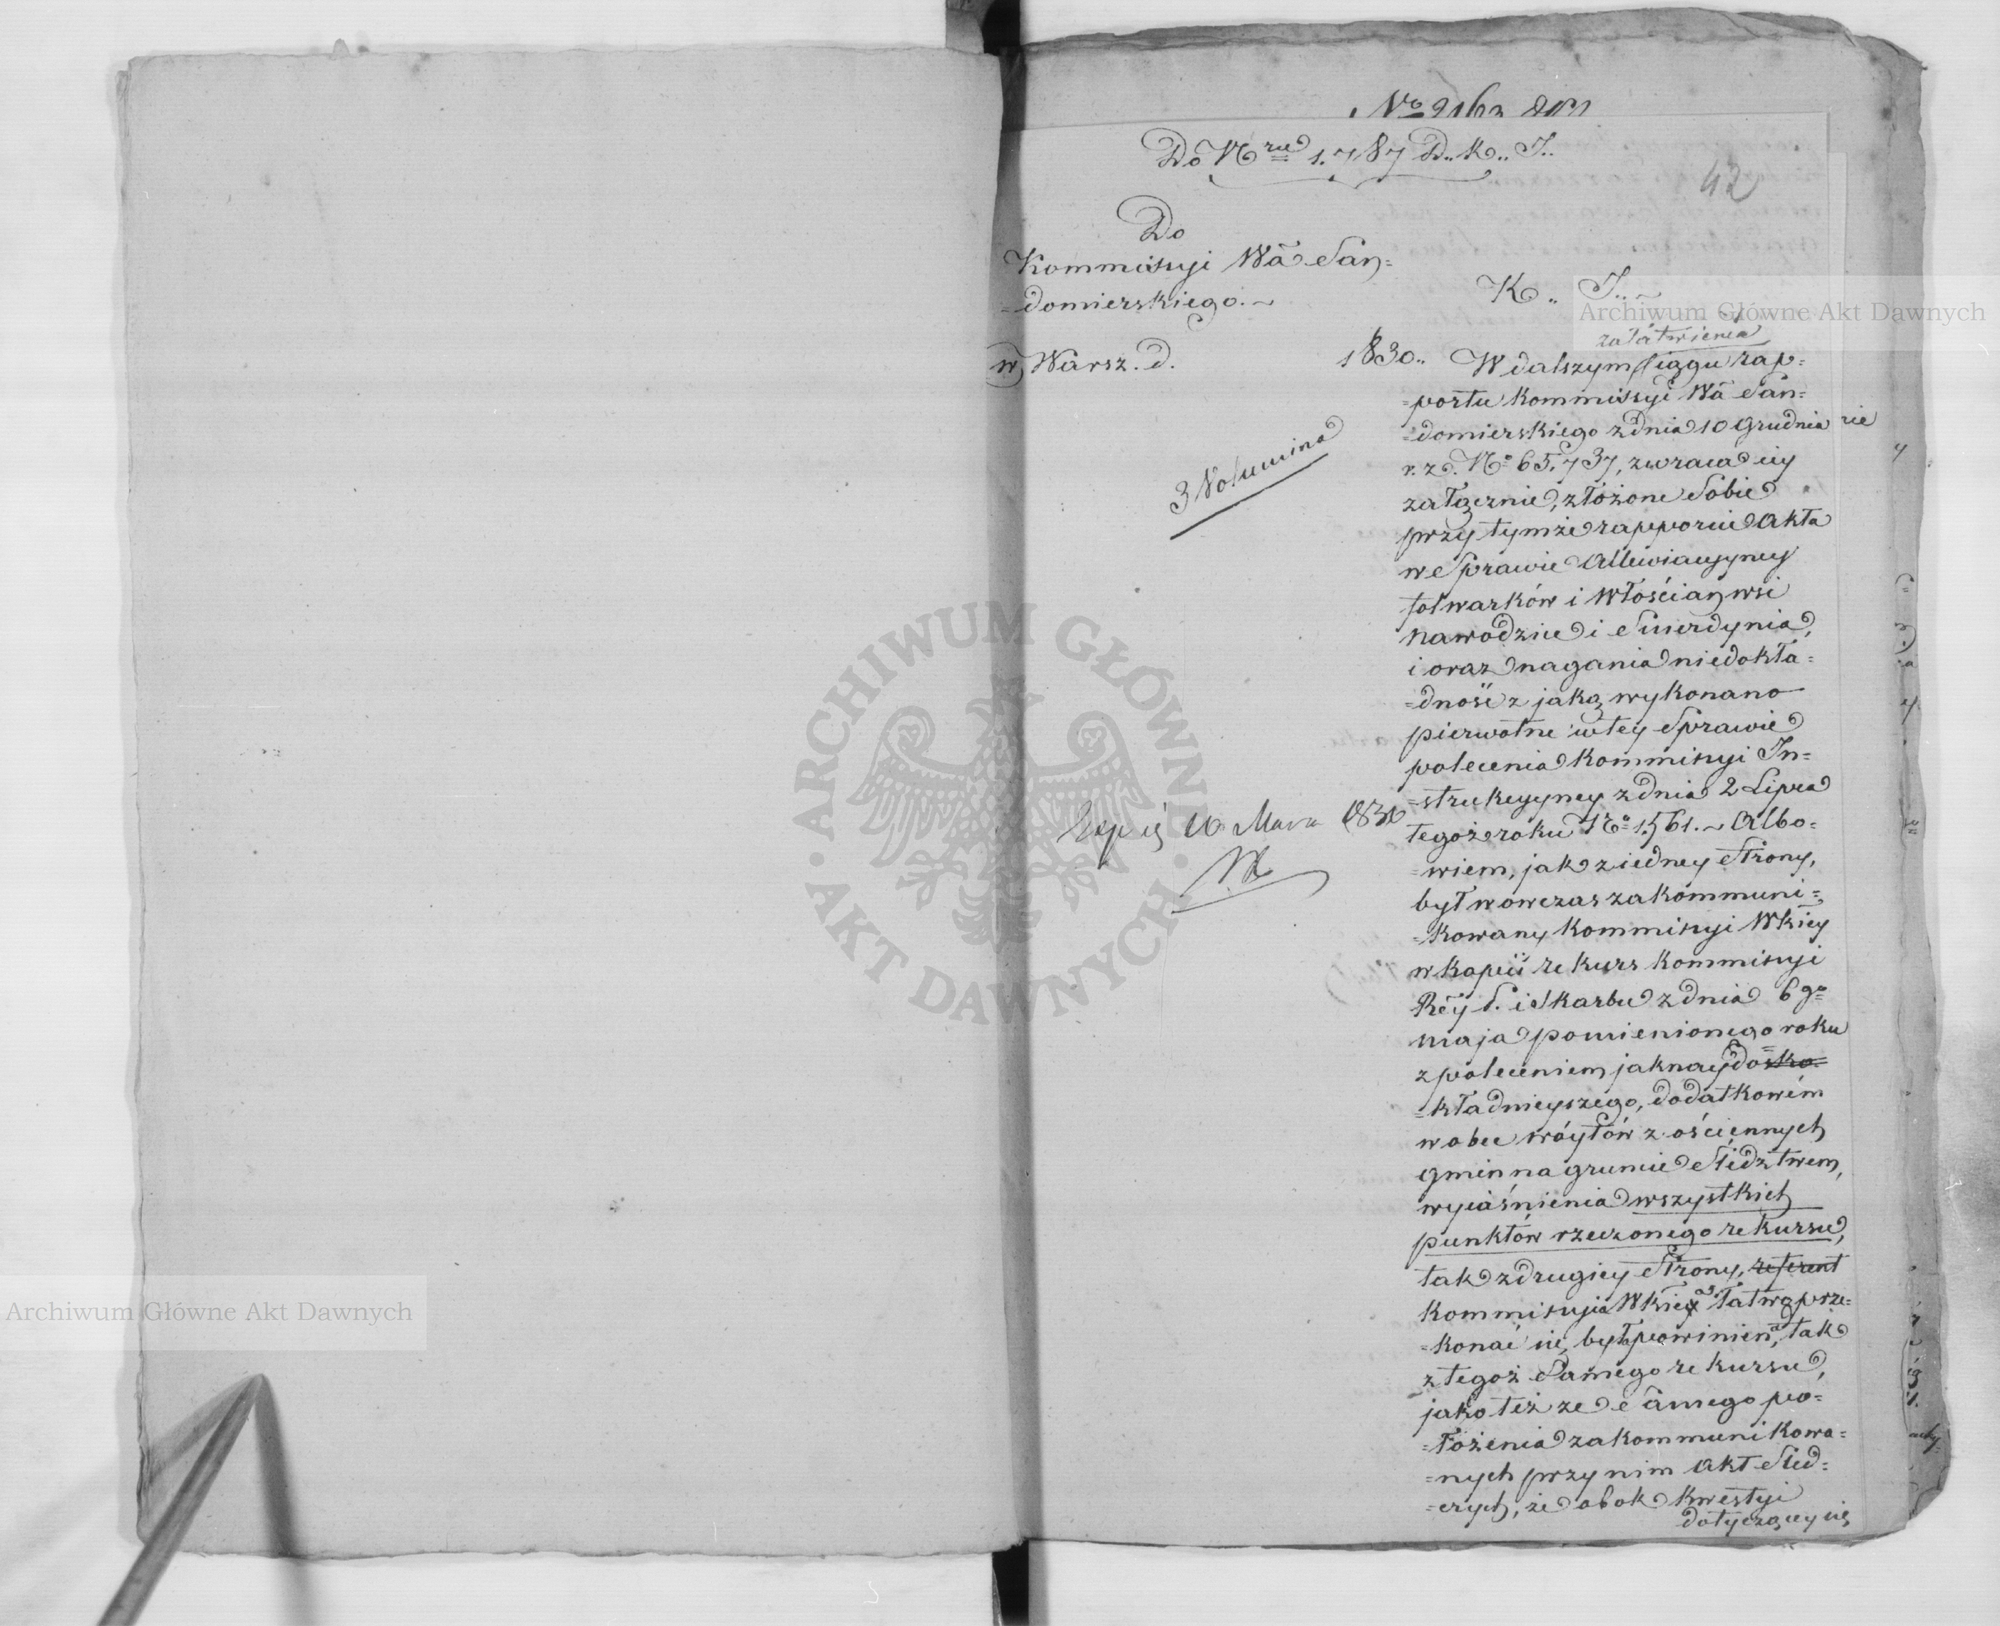 Do Nru 1.787 D.. K.. I..
42
Do
Kommissyi Wa San=
=domierskiego.~
w Warsz. d. 1830..
3 Volumina
K.. I..~
załatwienia
W dalszym Ciągu rap=
=portu Kommissyi Wa San=
=domierskiego z dnia 10 Grudnia
r. z. No 65,737, zwraca się
załącznie, złożone Sobie
przy tymże rapporcie Akta
w Sprawie Allewiacyyney
folwarków i Włościan wsi
Nawodzice i Smerdynia,
i oraz nagania niedokła=
=dność z jaką wykonano
pierwotne w tey Sprawie
polecenia Kommissyi In=
=strukcyyney z dnia 2 Lipca
tegoż roku No 1,561.~ Albo=
=wiem, jak z iedney Strony,
był wowczas zakommuni=
=kowany Kommissyi Wkiey
w kopii rekurs Kommissyi
Rey P. i Skarbu z dnia 6go
maja pomienionego roku
z poleceniem jaknaydosko=
=kładnieyszego, dodatkowém
w obec wóytów z ościennych
gmin na gruncie Śledztwem,
wyiaśnienia wszystkich
punktów rzeczonego rekursu,
tak z drugiey Strony, referent
Kommissyia Wkiey a łatwo prze=
=konać się, była powinien, a tak
z tegoż Samego rekursu,
jako też ze Samego po=
=łożenia zakommunikowa=
=nych przy nim Akt Sled=
=czych, że obok kwestyi
dotyczącey się
Exp. 10 Marca 1830
Archiwum Główne Akt Dawnych
Archiwum Główne Akt Dawnych
ARCHIWUM GŁÓWNE · AKT DAWNYCH ·